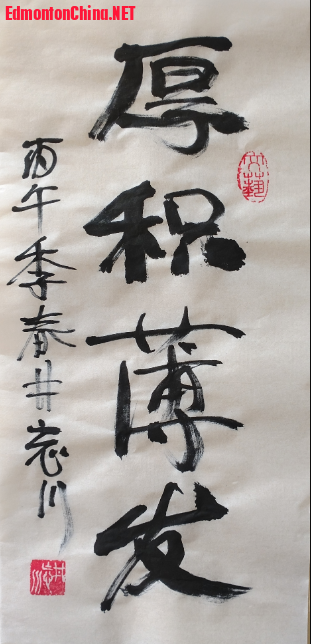 EdmontonChina.NET
厚积薄发
丙午季春井
川